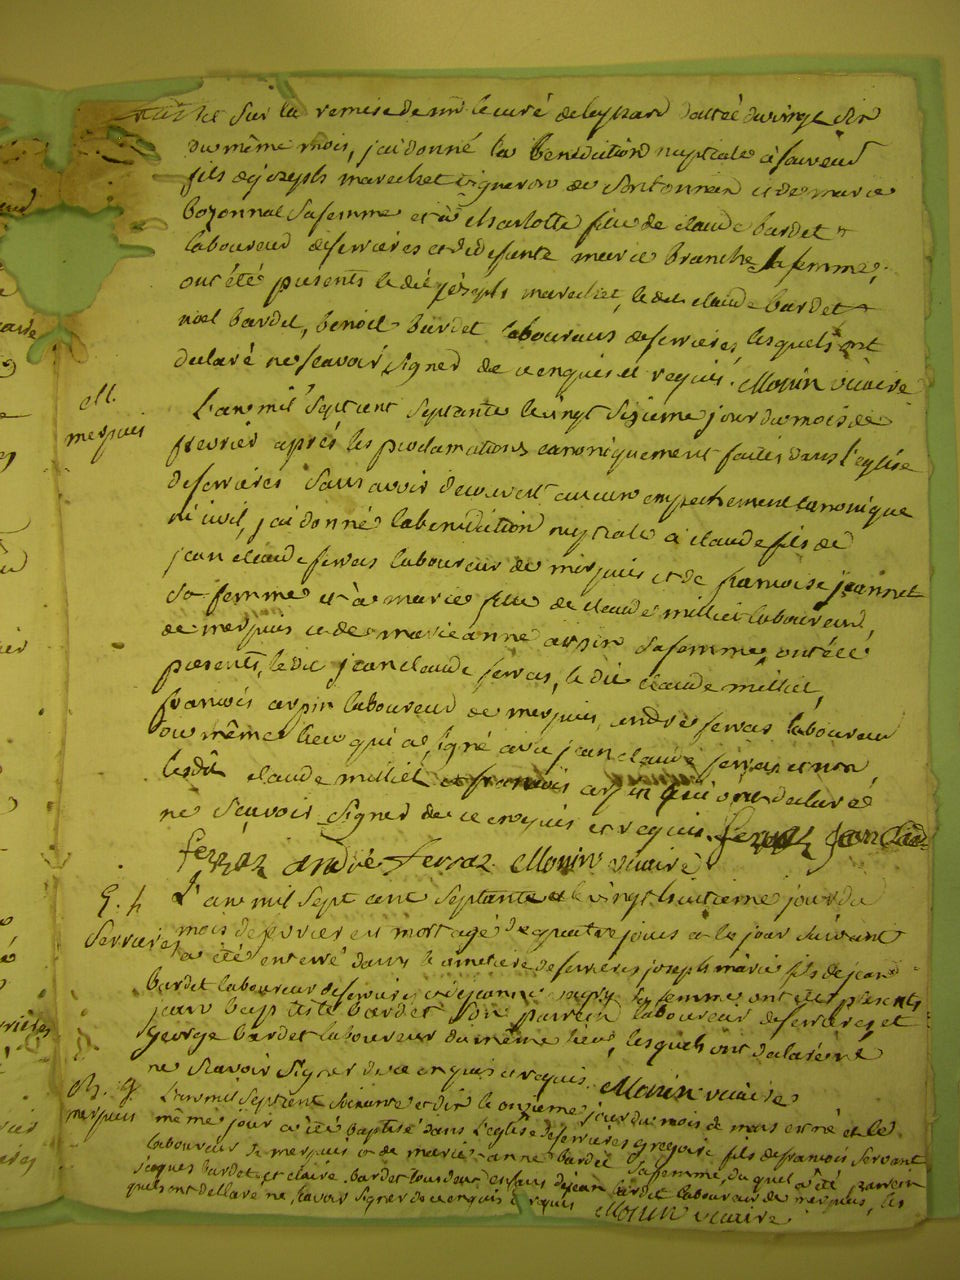 sur la remise de mr le curé de leyssard dattée du vingt six
du même mois, j'ai donné la benediction nuptiale à
fils de joseph marechet vigneron de et de marie
bozonnal sa femme et à charlotte fille de claude bardet
laboureur de serrieres et de defunte marie branche sa femme,
ont été presents le dit joseph marechet, le dit claude bardet
noel bardet, benoit bardet laboureurs de serrieres, lesquels ont
declaré ne scavoir signer de ce enquis et requis. Monin vicaire
M.
merpuis
L'an mil septcent septante le vingt sixieme jour du mois de
fevrier aprés les proclamations canoniquement faites dans l'eglise
de serrieres sans avoir decouvert aucun empechement canonique
ni civil, j'ai donné la benediction nuptiale à claude fils de
jean claude servas laboureur de merpuis et de francoise jeannet
sa femme et à marie fille de claude milliet laboureur
de merpuis et de marie anne arpin sa femme, ont été
presents, le dit jean claude servas, le dit claude milliet,
francois arpin laboureur de merpuis, andré servas laboureur
du même lieu qui a signé avec jean claude servas et non
lesdit claude milliet et francois arpin qui ont declaré
ne scavoir signer de ce enquis et requis. ferraz Jean Clau
ferraz andré ferraz Monin vicaire
S. h
Serrieres
L'an mil sept cent septante et le vingt huitieme jour du
mois de fevrier est mort agé de quatre jours et le jour suivant
a été enterré dans le cimetiere de serrieres joseph marie fils de jean
bardet laboureur de serrieres et de jeanne sa femme ont été presents
jean baptiste bardet son parrein laboureur de serrieres et
George bardet laboureur du même lieu, lesquels ont declaré
ne scavoir signer de ce enquis et requis. Monin vicaire
B. g.
merpuis
L'an mil septcent soixante et dix le onzieme jour du mois de mars est né et le
même jour a été baptisé dans l'eglise de serrieres gregoire fils de francois servant
laboureur de merpuis et de marie anne bardet sa femme, du quel a été parrein
jacques bardet et claire bardet tous deux enfans de jean bardet laboureur de merpuis, les
quels ont dellaré ne scavoir signer de ce enquis et requis Monin vicaire